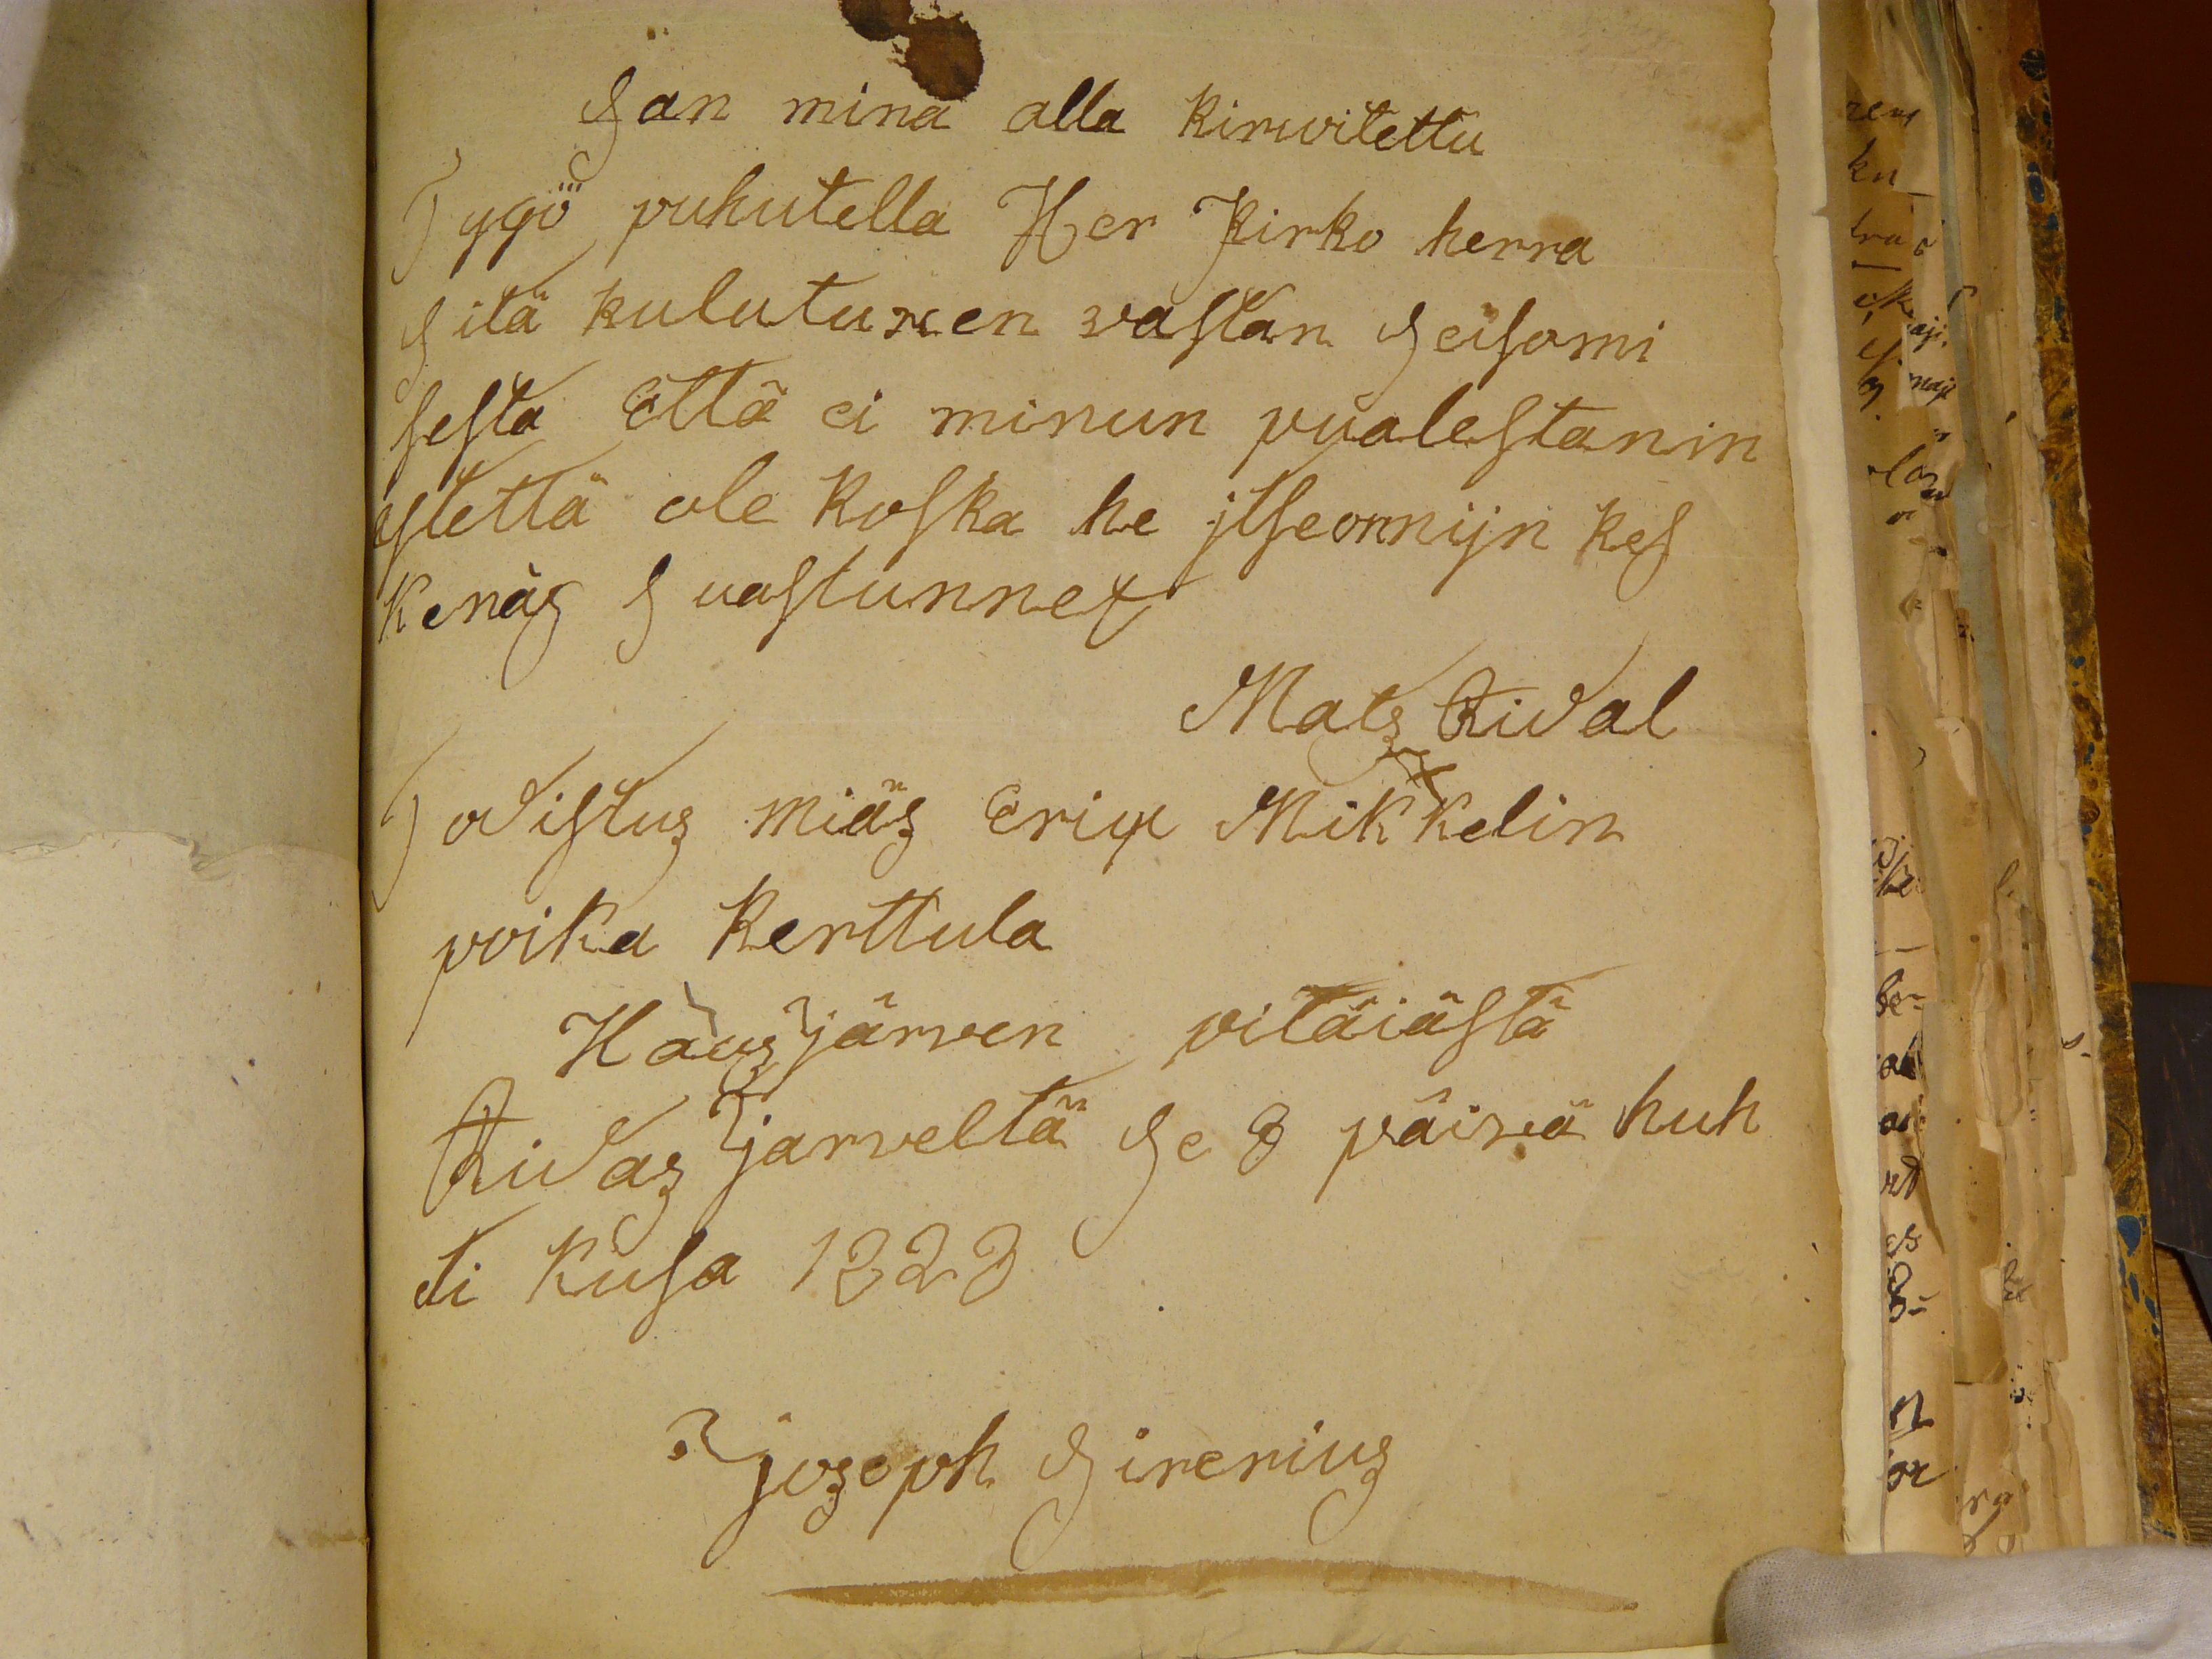 San mina alla kirwitettu
Tygö puhutella Her Kirko herra
Sitä kulutuxen wastan Seisomi
sesta Että ei minun pualestanin
estettä ole koska he jtseonnijn kes
kenäs Suastunnet
Mats Rival
Todistus miäs Erix Mikkelin
poika Kerttula
Haus järwen pitäiästä
Ridas jarveltä Se 8 päiwä huh
ti kusa 1828
Joseph Sirenius